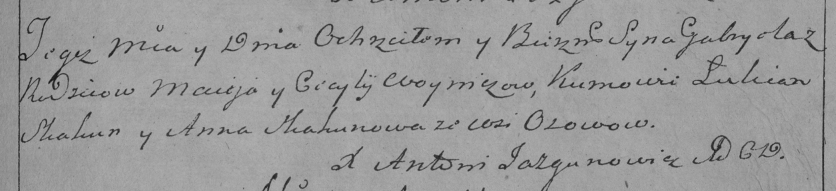 Tegiż Mca y Dnia Ochrzciłem y Bierzm Syna Gabryela z
Rodzicow Macieja y Cecylij Woyniczow, Kumowie Łukian
Skakun y Anna Skakunowa ze wsi Osowow.
X Antoni Jazgunowicz